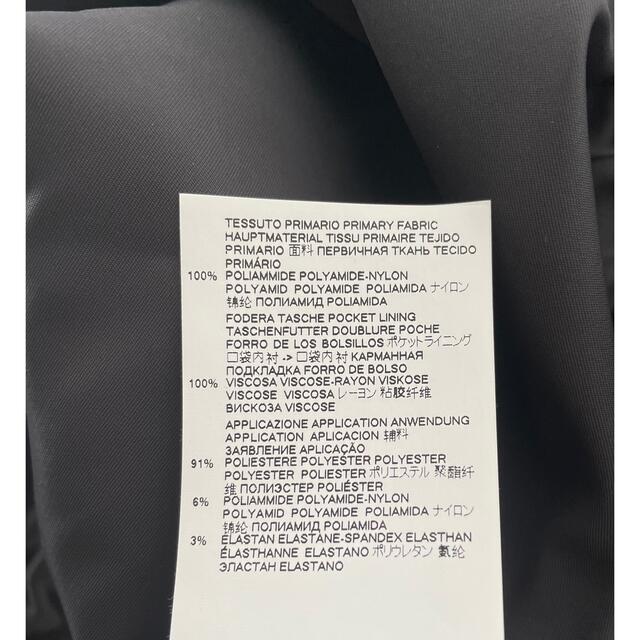 TESSUTO PRIMARIO PRIMARY FABRIC
HAUPTMATERIAL TISSU PRIMAIRE TEJIDO
PRIMARIO 面料 ПЕРВИЧНАЯ ТКАНЬ TECIDO
PRIMÁRIO
100% POLIAMMIDE POLYAMIDE-NYLON
POLYAMID POLYAMIDE POLIAMIDA ナイロン
锦纶 ПОЛИАМИД POLIAMIDA
FODERA TASCHE POCKET LINING
TASCHENFUTTER DOUBLURE POCHE
FORRO DE LOS BOLSILLOS ポケットライニング
口袋内衬 -> 口袋内衬 КАРМАННАЯ
ПОДКЛАДКА FORRO DE BOLSO
100% VISCOSA VISCOSE-RAYON VISKOSE
VISCOSE VISCOSA レーヨン 粘胶纤维
ВИСКОЗА VISCOSE
APPLICAZIONE APPLICATION ANWENDUNG
APPLICATION APLICACION 辅料
ЗАЯВЛЕНИЕ APLICAÇÃO
91% POLIESTERE POLYESTER POLYESTER
POLYESTER POLIESTER ポリエステル 聚酯纤
维 ПОЛИЭСТЕР POLIÉSTER
6% POLIAMMIDE POLYAMIDE-NYLON
POLYAMID POLYAMIDE POLIAMIDA ナイロン
锦纶 ПОЛИАМИД POLIAMIDA
3% ELASTAN ELASTANE-SPANDEX ELASTHAN
ÉLASTHANNE ELASTANO ポリウレタン 氨纶
ЭЛАСТАН ELASTANO